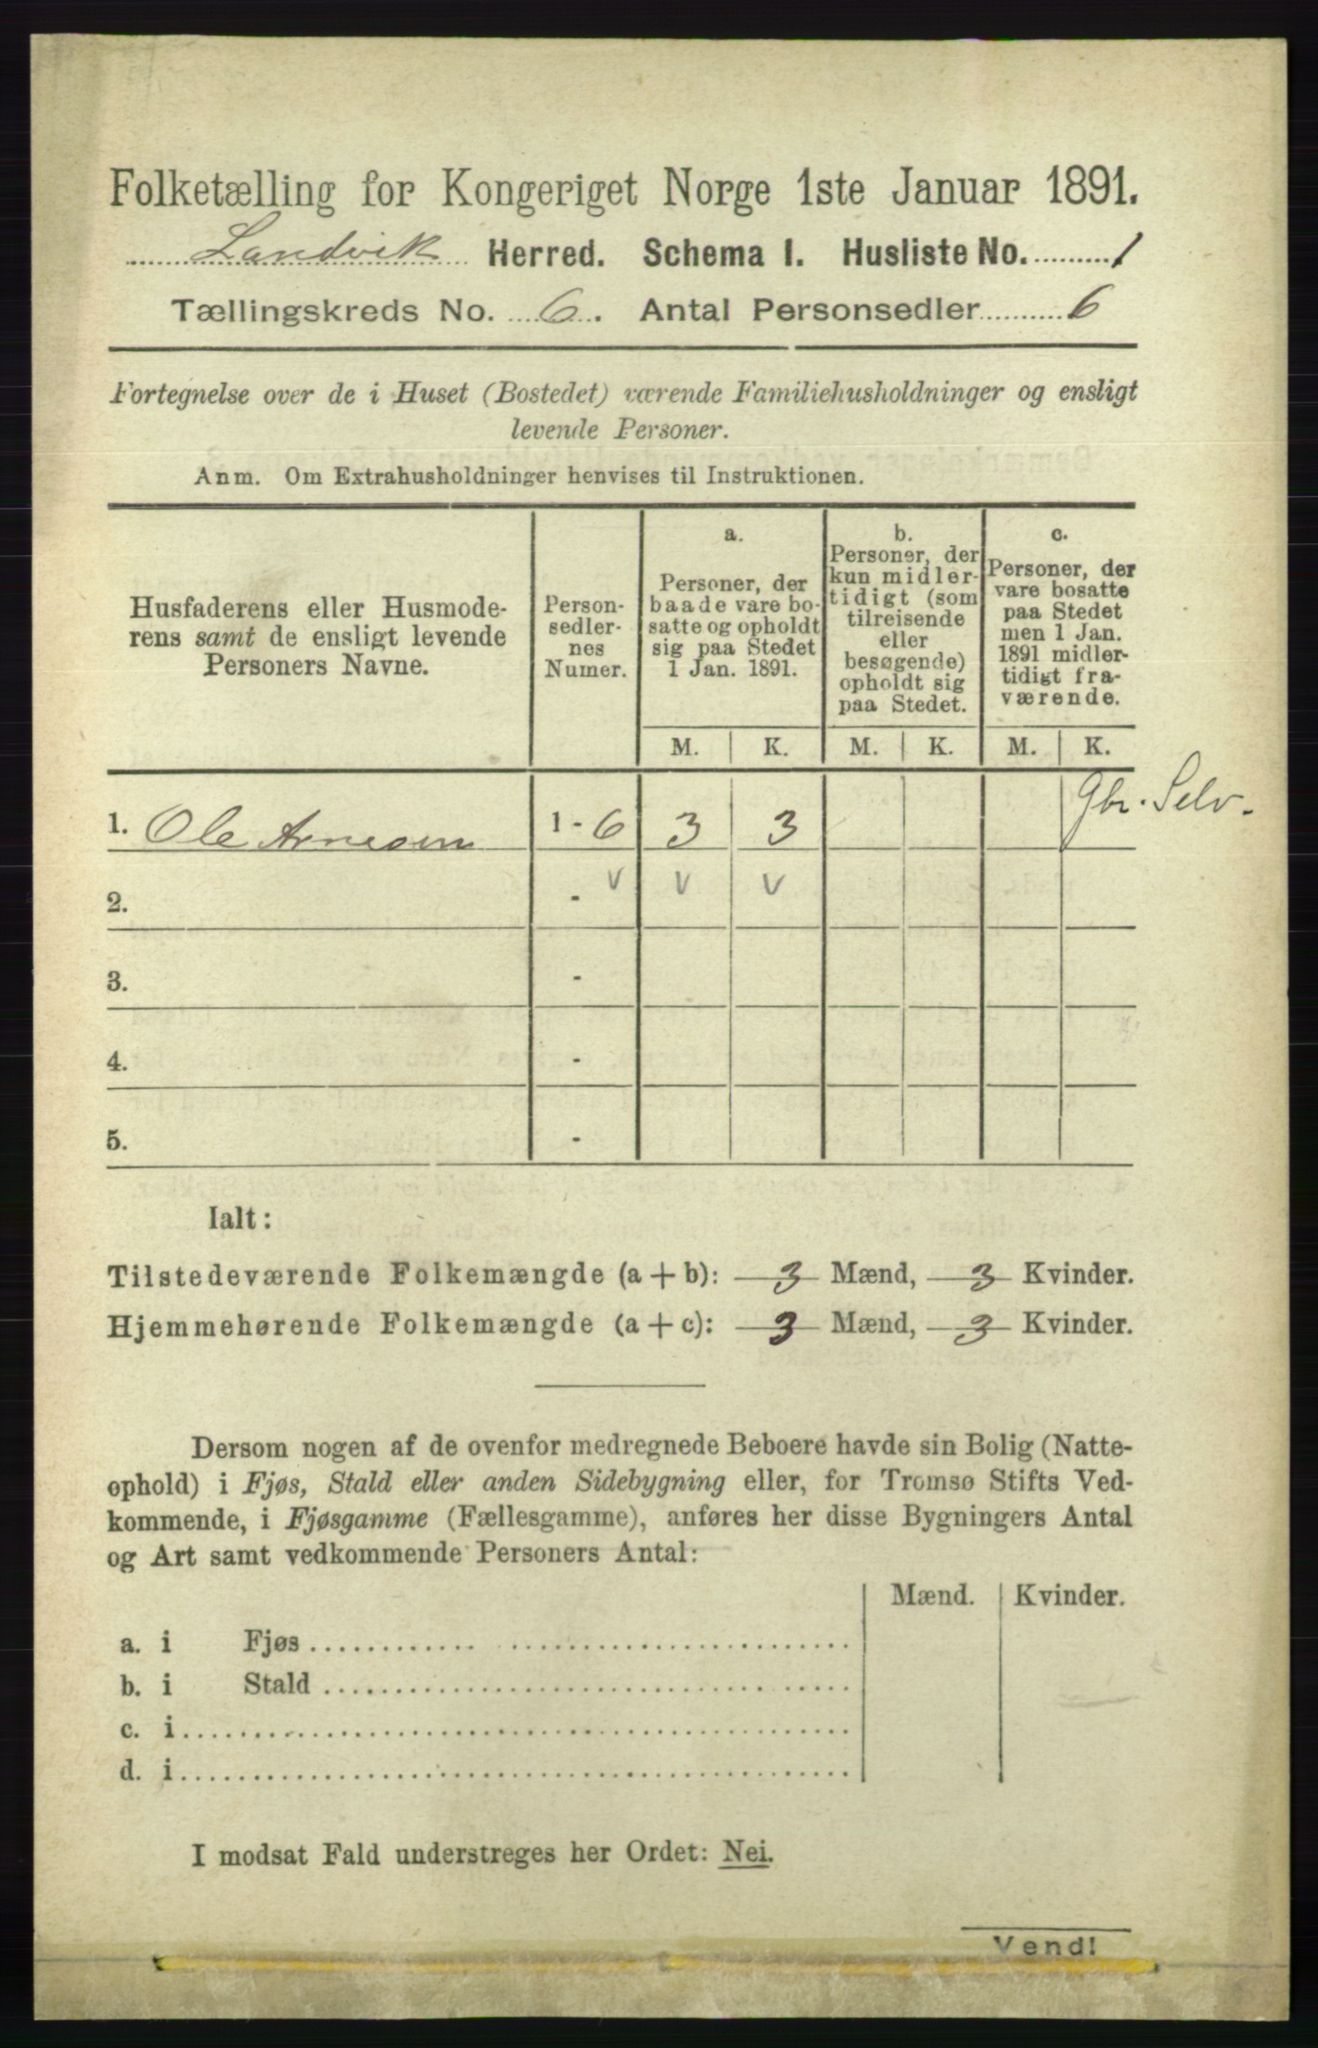 Folketælling for Kongeriget Norge 1ste Januar 1891.
Landvik Herred. Schema I. Husliste No. 1
Tællingskreds No. 6. Antal Personsedler 6
Fortegnelse over de i Huset (Bostedet) værende Familiehusholdninger og ensligt
levende Personer.
Anm. Om Extrahusholdninger henvises til Instruktionen.
Husfaderens eller Husmode-
rens samt de ensligt levende
Personers Navne.
Person-
sedler-
nes
Numer.
a.
Personer, der
baade vare bo-
satte og opholdt
sig paa Stedet
1 Jan. 1891.
b.
Personer, der
kun midler-
tidigt (som
tilreisende
eller
besøgende)
opholdt sig
paa Stedet.
c.
Personer, der
vare bosatte
paa Stedet
men 1 Jan.
1891 midler-
tidigt fra-
værende.
M. K. M. K. M. K.
1. Ole Arnesen 1 - 6 3 3 Gbr. Selv.
2. - v v v
3. -
4. -
5. -
Ialt:
Tilstedeværende Folkemængde (a + b): 3 Mænd, 3 Kvinder.
Hjemmehørende Folkemængde (a + c): 3 Mænd, 3 Kvinder.
Dersom nogen af de ovenfor medregnede Beboere havde sin Bolig (Natte-
ophold) i Fjøs, Stald eller anden Sidebygning eller, for Tromsø Stifts Ved-
kommende, i Fjøsgamme (Fællesgamme), anføres her disse Bygningers Antal
og Art samt vedkommende Personers Antal:
Mænd. Kvinder.
a. i Fjøs
b. i Stald
c. i
d. i
I modsat Fald understreges her Ordet: Nei.
Vend!